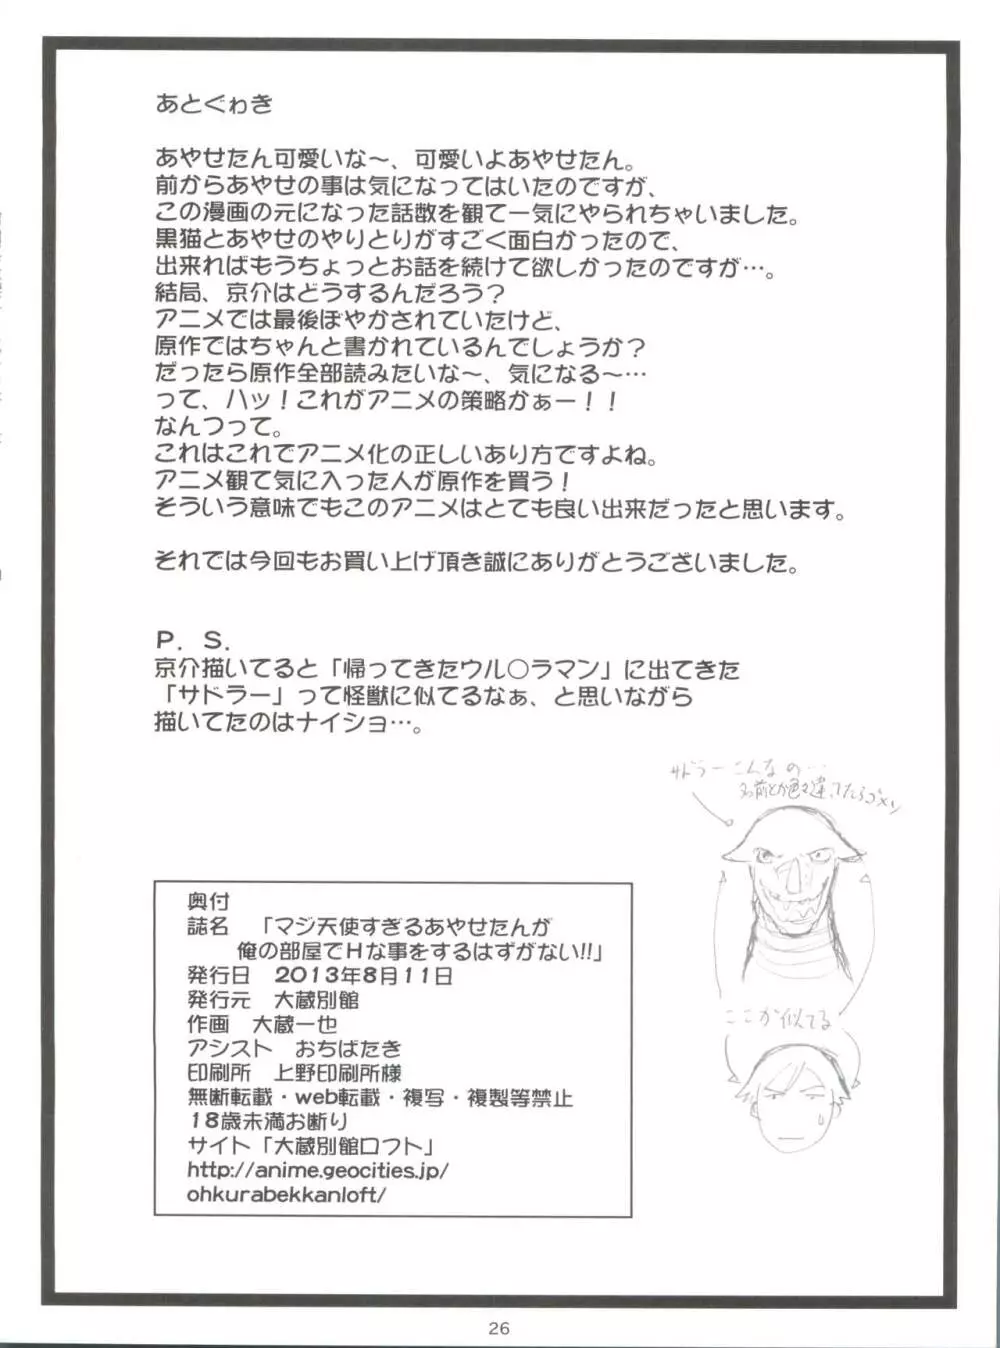 あとぐゎき
あやせたん可愛いな～、可愛いよあやせたん。
前からあやせの事は気になってはいたのですが、
この漫画の元になった話数を観て一気にやられちゃいました。
黒猫とあやせのやりとりがすごく面白かったので、
出来ればもうちょっとお話を続けて欲しかったのですが…。
結局、京介はどうするんだろう？
アニメでは最後ぼやかされていたけど、
原作ではちゃんと書かれているんでしょうか？
だったら原作全部読みたいな～、気になる～…
って、ハッ！これがアニメの策略かぁー！！
なんつって。
これはこれでアニメ化の正しいあり方ですよね。
アニメ観て気に入った人が原作を買う！
そういう意味でもこのアニメはとても良い出来だったと思います。
それでは今回もお買い上げ頂き誠にありがとうございました。
Ｐ．Ｓ．
京介描いてると「帰ってきたウル○ラマン」に出てきた
「サドラー」って怪獣に似てるなぁ、と思いながら
描いてたのはナイショ…。
サドラーこんなの…
名前とか色々違ってたらゴメン
ここが似てる
奥付
誌名　「マジ天使すぎるあやせたんが
俺の部屋でＨな事をするはずがない!!」
発行日　2013年8月11日
発行元　大蔵別館
作画　大蔵一也
アシスト　おちばたき
印刷所　上野印刷所様
無断転載・web転載・複写・複製等禁止
18歳未満お断り
サイト「大蔵別館ロフト」
http://anime.geocities.jp/
ohkurabekkanloft/
26